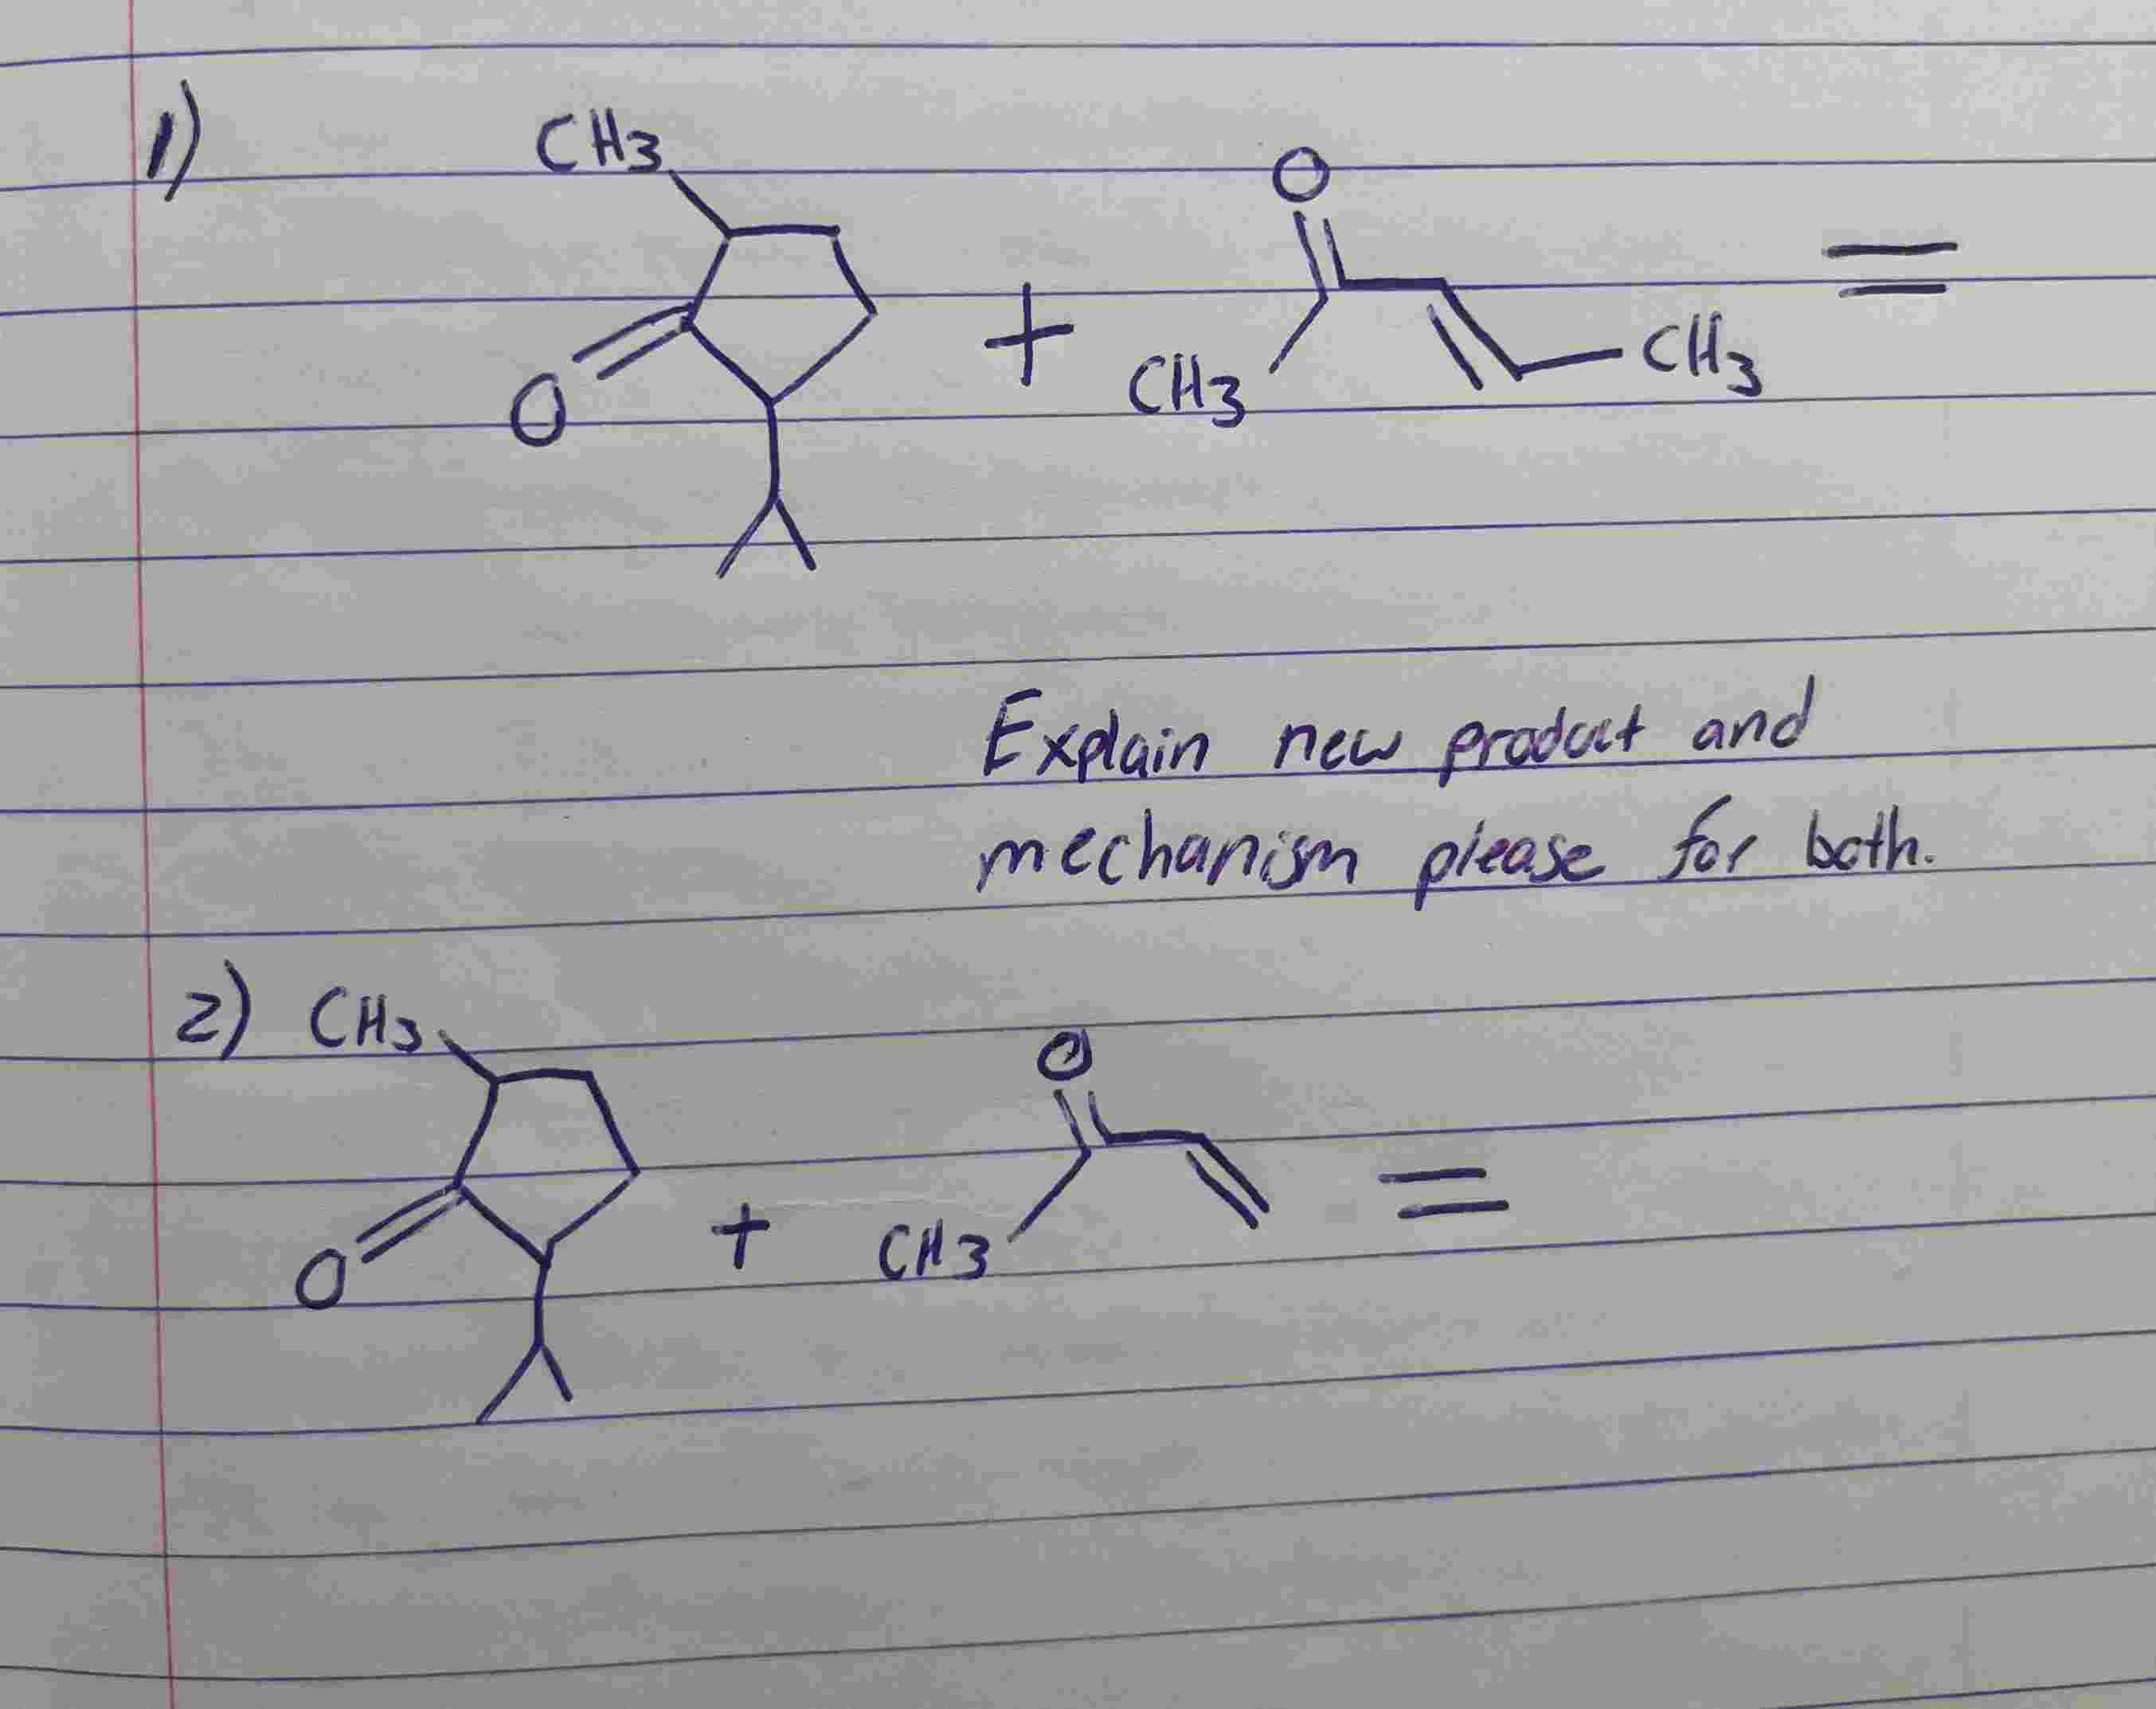 1)
CH3
O
+
O
CH3
CH3
=
Explain new product and
mechanism please for both.
2) CH3
O
+
O
CH3
=